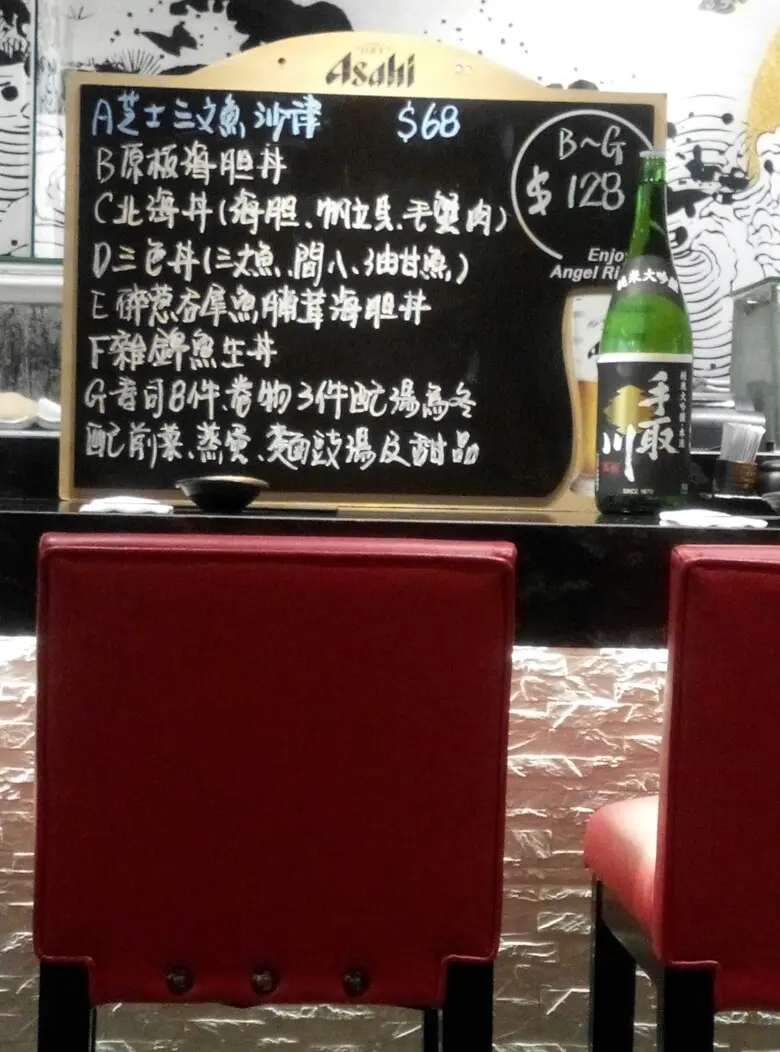 Asahi
A芝士三文魚沙律 $68
B原板海胆丼
C北海丼(海胆、帆立貝、毛蟹肉)
D三色丼(三文魚、間八、油甘魚)
E碎葱吞拿魚腩茸海胆丼
F雜錦魚生丼
G寿司8件、卷物3件配湯烏冬
配前菜、蒸蛋、麵豉湯及甜品
B~G
$128
Enjoy
Angel Ri
純米大吟醸
手取川
純米大吟醸
SINCE 1870